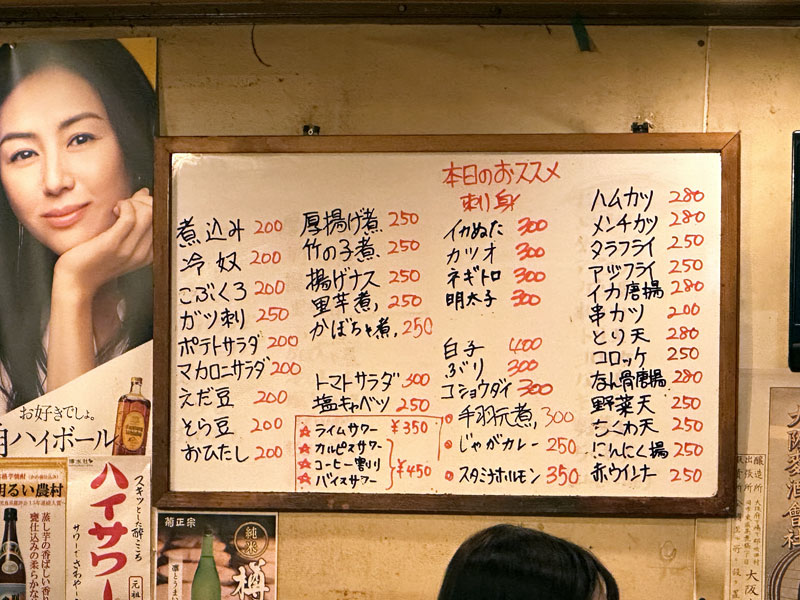 煮込み 200
冷奴 200
こぶくろ 200
ガツ刺 250
ポテトサラダ 200
マカロニーサラダ 200
えだ豆 200
そら豆 200
おひたし 200
厚揚げ煮 250
竹の子煮 250
揚げナス 250
里芋煮 250
かぼちゃ煮 250
トマトサラダ 300
塩キャベツ 250
ライムサワー ¥350
カルピスサワー
コーヒー割り
バイスサワー
¥450
本日のおススメ
刺し身
イカぬた 300
カツオ 300
ネギトロ 300
明太子 300
白子 400
ぶり 300
コショウダイ 300
手羽元煮 300
じゃがカレー 250
スタミナホルモン 350
ハムカツ 280
メンチカツ 280
タラフライ 250
アジフライ 250
イカ唐揚 280
串カツ 200
とり天 280
コロッケ 250
なん骨唐揚 280
野菜天 250
ちくわ天 250
にんにく揚 250
赤ウインナ 250
お好きでしょ。
角ハイボール
明るい農村
蒸し芋の香ばしい香り
甕仕込みの柔らかな
スキッとした酔ごころ
ハイサワー
サワーでさわやかー
元祖
菊正宗
純米
樽
凛とうまい
醸造所
出張所
大阪
大阪麦酒會社